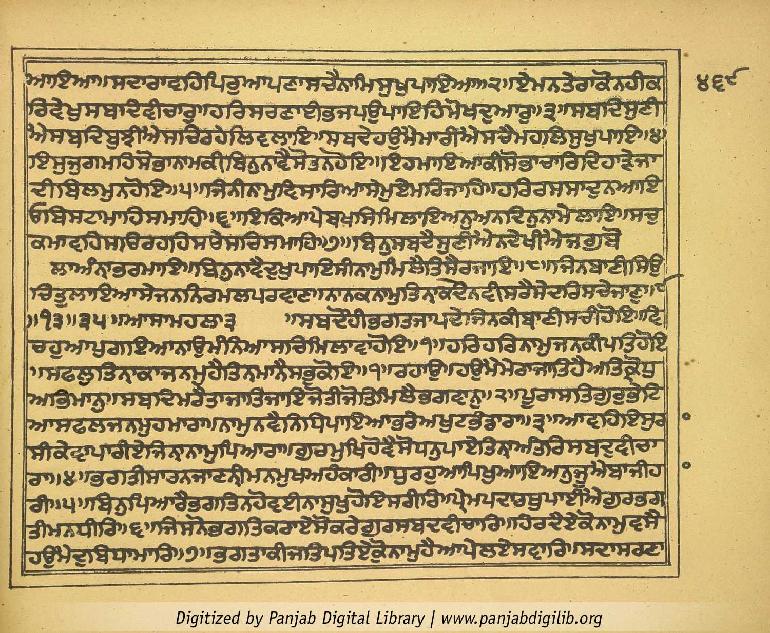 ਆਇਆ॥ਸਦਾਰਾਵਹਿਪਿਰੁਆਪਣਾਸਚੈਨਾਮਿਸੁਖੁਪਾਇਆ॥੨॥ਏਮਨਤੇਰਾਕੋਨਹੀਕ ੪੬੯
ਰਿਵੇਖੁਸਬਦਿਵੀਚਾਰੁ॥ਹਰਿਸਰਣਾਈਭਜਿਪਉਪਾਇਹਿਮੋਖਦੁਆਰੁ॥੩॥ਸਬਦਿਸੁਣੀ
ਐਸਬਦਿਬੁਝੀਐਸਚਿਰਹੈਲਿਵਲਾਇ॥ਸਬਦੇਹਉਮੈਮਾਰੀਐਸਚੈਮਹਲਿਸੁਖੁਪਾਇ॥੪॥
ਇਸੁਜੁਗਮਹਿਸੋਭਾਨਾਮਕੀਬਿਨੁਨਾਵੈਸੋਭਨਹੋਇ॥ਇਹਮਾਇਆਕੀਸੋਭਾਚਾਰਿਦਿਹਾੜੇਜਾ
ਦੀਬਿਲਮੁਨਹੋਇ॥੫॥ਜਿਨੀਨਾਮੁਵਿਸਾਰਿਆਸੇਮੁਏਮਰਿਜਾਹਿ॥ਹਰਿਰਸਸਾਦੁਨਆਇ
ਓਬਿਸਟਾਮਾਹਿਸਮਾਹਿ॥੬॥ਇਕਿਆਪੇਬਖਸਿਮਿਲਾਇਅਨੁਅਨਦਿਨੁਨਾਮੇਲਾਇ॥ਸਚੁ
ਕਮਾਵਹਿਸਚਿਰਹਹਿਸਚੇਸਚਿਸਮਾਹਿ॥੭॥ਬਿਨੁਸਬਦੈਸੁਣੀਐਨਦੇਖੀਐਜਗੁਬੋ
ਲਾਅੰਨਾਭਰਮਾਇ॥ਬਿਨੁਨਾਵੈਦੁਖੁਪਾਇਸੀਨਾਮੁਮਿਲੈਤਿਸੈਰਜਾਇ॥੮॥ਜਿਨਬਾਣੀਸਿਉ
ਚਿਤੁਲਾਇਆਸੇਜਨਨਿਰਮਲਪਰਵਾਣੁ॥ਨਾਨਕਨਾਮੁਤਿਨਾਕਦੇਨਵੀਸਰੈਸੇਦਰਿਸਚੇਜਾਣੁ॥੯
॥੧੩॥੩੫॥ਆਸਾਮਹਲਾ੩ ॥ਸਬਦੌਹੀਭਗਤਜਾਪਦੇਜਿਨਕੀਬਾਣੀਸਚੀਹੋਇ॥ਵਿ
ਚਹੁਆਪੁਗਇਆਨਾਉਮੰਨਿਆਸਚਿਮਿਲਾਵਾਹੋਇ॥੧॥ਹਰਿਹਰਿਨਾਮੁਜਨਕੀਪਤਿਹੋਇ
॥ਸਫਲੁਤਿਨਾਕਾਜਨਮੁਹੈਤਿਨਮਾਨੈਸਭੁਕੋਇ॥੧॥ਰਹਾਉ॥ਹਉਮੈਮੇਰਾਜਾਤਿਹੈਅਤਿਕ੍ਰੋਧੁ
ਅਭਿਮਾਨੁ॥ਸਬਦਿਮਰੈਤਾਜਾਤਿਜਾਇਜੋਤੀਜੋਤਿਮਿਲੈਭਗਵਾਨੁ॥੨॥ਪੂਰਾਸਤਿਗੁਰੁਭੇਟਿ
ਆਸਫਲਜਨਮੁਹਮਾਰਾ॥ਨਾਮੁਨਵੈਨਿਧਿਪਾਇਆਭਰੇਅਖੁਟਭੰਡਾਰਾ॥੩॥ਆਵਹਿਇਸੁਰਾ
ਸੀਕੇਵਾਪਾਰੀਏਜਿਨਾਨਾਮੁਪਿਆਰਾ॥ਗੁਰਮੁਖਿਹੋਵੈਸੋਧਨੁਪਾਏਤਿਨਾਅੰਤਰਿਸਬਦੁਵੀਚਾ
ਰਾ॥੪॥ਭਗਤੀਸਾਰਨਜਾਣਨੀਮਨਮੁਖਅਹੰਕਾਰੀ॥ਧੁਰਹੁਆਪਿਖੁਆਇਅਨੁਜੂਐਬਾਜੀਹਾ
ਰੀ॥੫॥ਬਿਨੁਪਿਆਰੈਭਗਤਿਨਹੋਵਈਨਾਸੁਖੁਹੋਇਸਰੀਰਿ॥ਪ੍ਰੇਮਪਦਾਰਥੁਪਾਈਐਗੁਰਭਗ
ਤੀਮਨਧੀਰਿ॥੬॥ਜਿਸਨੋਭਗਤਿਕਰਾਏਸੋਕਰੇਗੁਰਸਬਦਵੀਚਾਰਿ॥ਹਿਰਦੈਏਕੋਨਾਮੁਵਸੈ
ਹਉਮੈਦੁਬਿਧਾਮਾਰਿ॥੭॥ਭਗਤਾਕੀਜਤਿਪਤਿਏਕੋਨਾਮੁਹੈਆਪੇਲਏਸਵਾਰਿ॥ਸਦਾਸਰਣਾ
Digitized by Panjab Digital Library | www.panjabdigilib.org